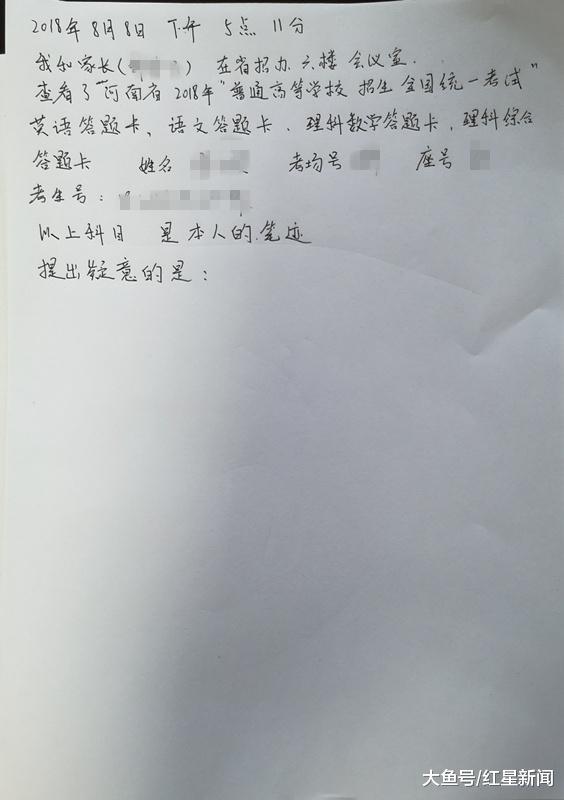 2018年8月8日 下午 5点11分
我和家长( ) 在省招办六楼会议室.
查看了河南省2018年"普通高等学校招生全国统一考试"
英语答题卡、语文答题卡、理科数学答题卡、理科综合
答题卡 姓名 考场号 座号
考生号:
以上科目 是本人的笔迹
提出疑意的是:
大鱼号/红星新闻